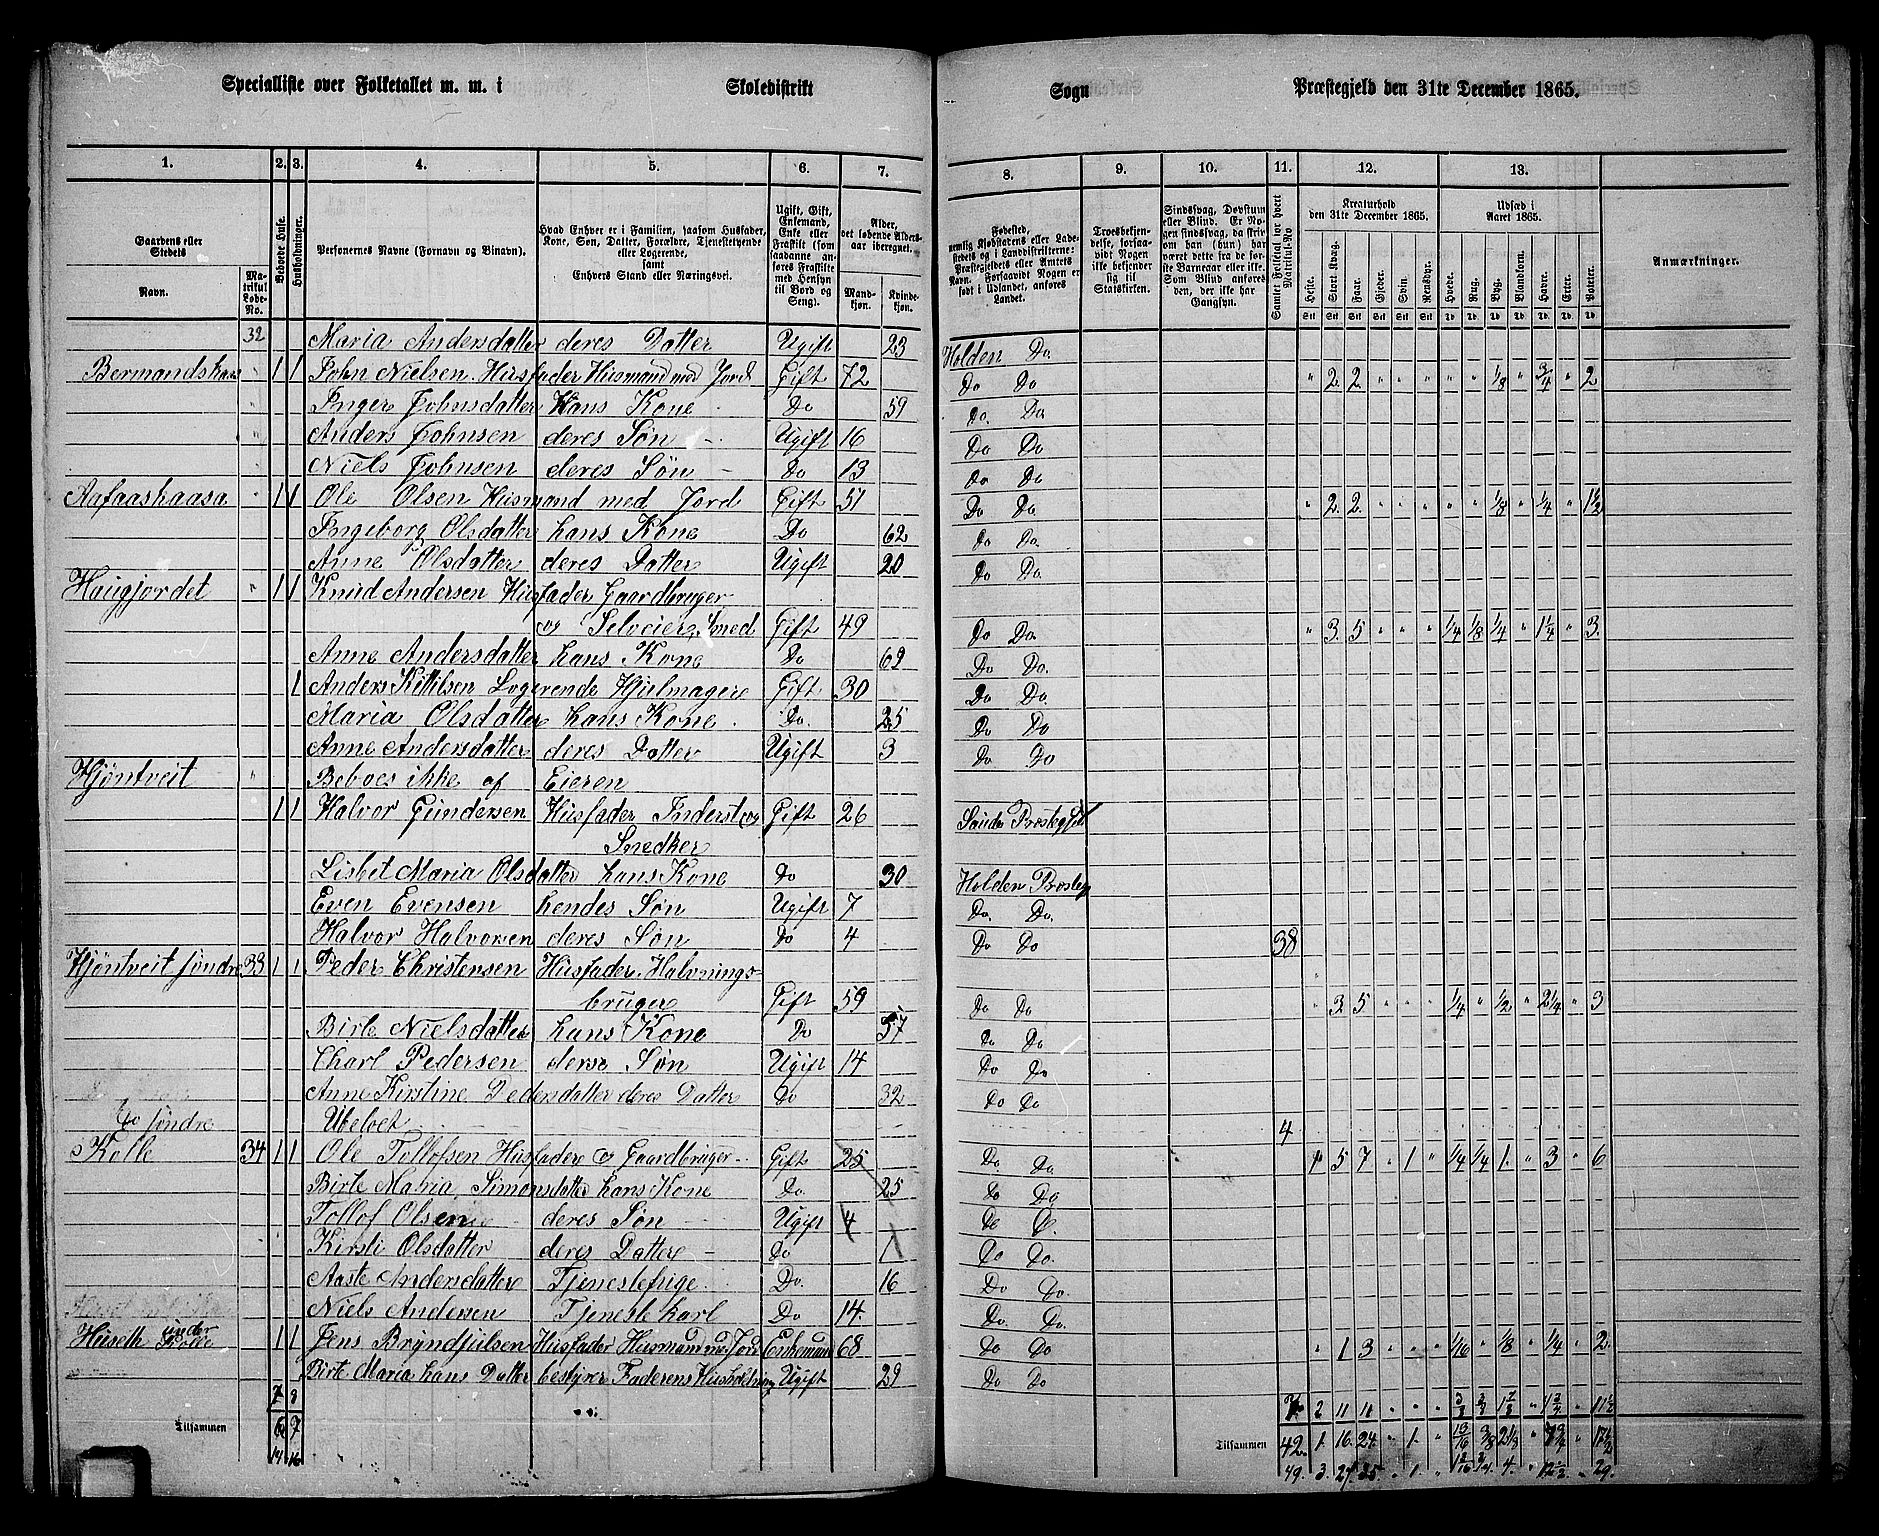 Specialliste over Folketallet m. m. i Skoledistrikt Sogn Præstegjeld den 31te December 1865.
1. 2. 3. 4. 5. 6. 7. 8. 9. 10. 11. 12. 13.
Gaardens eller Stedets Navn. Matrikul Løbe-No. Beboede Huse. Husholdninger. Personernes Navne (Fornavn og Binavn). Hvad Enhver er i Familien, saasom Husfader, Kone, Søn, Datter, Forældre, Tjenestetyende eller Logerende, samt Enhvers Stand eller Næringsvei. Ugift, Gift, Enkemand, Enke eller Fraskilt (som saadanne anføres Fraskilte med Hensyn til Bord og Seng). Alder, det løbende Aldersaar iberegnet. Mandkjøn. Kvindekjøn.
Fødested, nemlig Kjøbstadens eller Ladestedets og i Landdistrikterne: Præstegjeldets eller Amtets Navn. Forsaavidt Nogen er født i Udlandet, anføres Landet. Troesbekjendelse, forsaavidt Nogen ikke bekjender sig til Statskirken. Sindssvag, Døvstum eller Blind. Er Nogen sindssvag, da skriv om han (hun) har været dette fra de første Barneaar eller ikke. Som Blind anføres den, der ikke har Gangsyn. Samlet Folketal for hvert Matrikul-No
Kreaturhold den 31te December 1865. Heste. Stort Kvæg. Faar. Gjeder. Svin. Rensdyr. Udsæd i Aaret 1865. Hvede. Rug. Byg. Blandkorn. Havre. Erter. Poteter. Anmærkninger.
Stk Stk Stk Stk Stk Stk Td. Td. Td. Td. Td. Td. Td.
32 Maria Andersdatter deres Datter Ugift 23 Holden Do
" 1 1 John Nielsen Husfader Husmand med Jord Gift 72 Do Do " 2 2 " " " " " 1/8 " 3/4 " 2
" Inger Johnsdatter Hans Kone Do 59 Do. Do
" Anders Johnsen deres Søn Ugift 16 Do Do
" Niels Johnsen deres Søn Do 13 Do Do
Aafaashaasa " 1 1 Ole Olsen Husmand med Jord Gift 51 Do Do " 2 2 " " " " " 1/8 " 1/4 " 1 1/2
Ingeborg Olsdatter hans Kone Do 62 Do Do
Anne Olsdatter deres Datter Ugift 20 Do Do
Haugjordet " 1 1 Knud Andersen Husfader Gaardbruger
og Selveier, Smed Gift 49 Do Do " 3 5 " " " 1/4 1/8 1/4 " 1 1/4 " 3
Anne Andersdatter hans Kone Do 62 Do Do
1 Anders Kittilsen Logerende Hjulmager Gift 30 Do Do
Maria Olsdatter hans Kone Do. 25 Do Do
Anne Andersdatter deres Datter Ugift 3 Do Do
Hjøntveit " Beboes ikke af Eieren
1 1 Halvor Gundersen Husfader Inderst og Gift 26 Saude
Snedker
Lisbet Maria Olsdatter hans Kone Do 30 Holden
Even Evensen hendes Søn Ugift 7 Do. Do.
Halvor Halvorsen deres Søn Do 4 Do Do 38
Hjöntveit søndre 33 1 1 Peder Christensen Husfader, Halvnings-
bruger Gift 59 Do Do " 3 5 " " " 1/4 " 1/2 " 2 1/4 " 3
Birte Nielsdatter hans Kone Do 57 Do Do
Charl Pedersen derse Søn Ugift 14 Do Do
Anne Kirstine Pedersdatter deres Datter Do 32 Do Do
Do søndre Ubeboet 4
Kolle 34 1 1 Ole Tollofsen Husfader og Gaardbruger Gift 25 Do. Do 1 5 7 " 1 " 1/4 1/4 1. " 3 " 6
Birte Maria Simonsdatter hans Kone Do 25 Do Do
Tollof Olsen deres Søn Ugift 4 Do
Kirsti Olsdatter deres Datter Do 1 Do Do.
Aaste Andersdatter Tjenestepige Do 16 Do Do.
Niels Andersen Tjeneste karl Do 14. Do. Do.
Huseth under Kolle 1 1 Jens Bryndjulsen Husfader Husmand m. Jord Enkemand 68 Do Do " 1 3 " " " 1/16 " 1/8 " 1/4 " 2
Birte Maria hans Datter bestyrer Faderens Husholdning Ugift 29 Do Do
7 8 2 11 11 " " " 11 1/2
Tilsammen 6 7 Tilsammen 42. 1. 16. 24. " 1. " 13/16 3/8 2 1/8 " " 17 1/2
14 16 49. 3. 27. 35 " 1. " 3/4. 4. " 12 1/2. " 29.